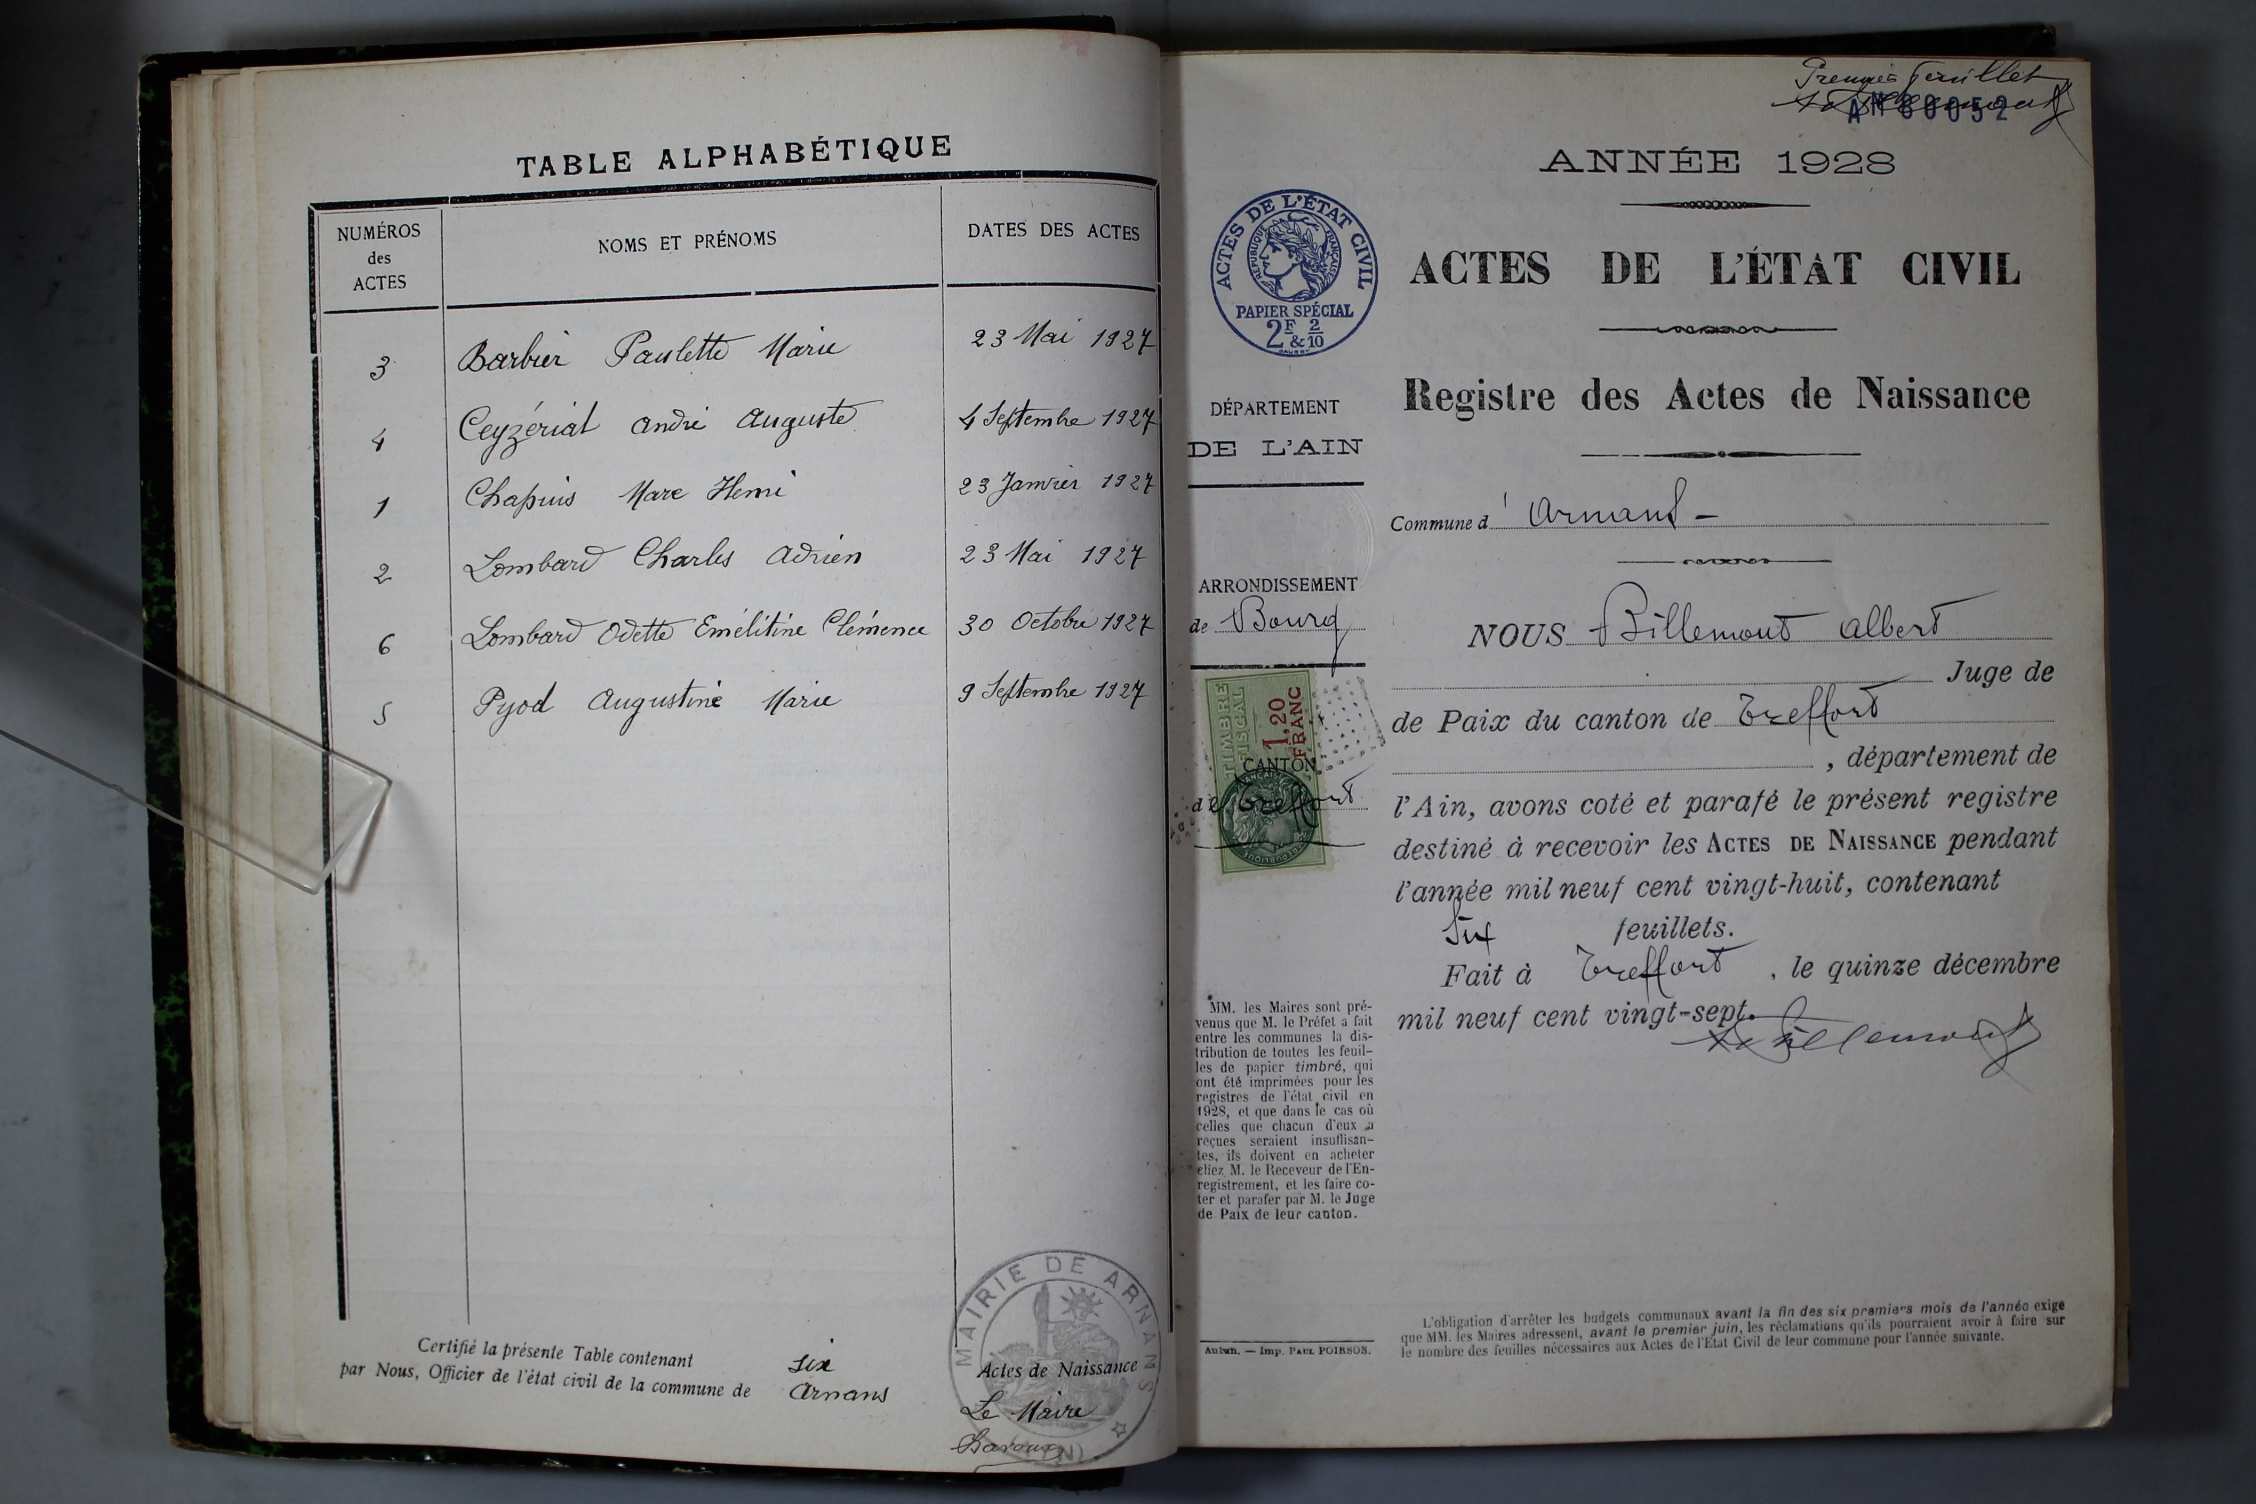 TABLE ALPHABÉTIQUE
NUMÉROS
des
ACTES
NOMS ET PRÉNOMS
DATES DES ACTES
3 Barbier Paulette Marie 23 Mai 1927
4 Ceyzériat André Auguste 4 Septembre 1927
1 Chapuis Marc Henri 23 Janvier 1927
2 Lombard Charles Adrien 23 Mai 1927
6 Lombard Odette Emélitine Clémence 30 Octobre 1927
5 Pyod Augustine Marie 9 Septembre 1927
Certifié la présente Table contenant six Actes de Naissance
par Nous, Officier de l'état civil de la commune de Arnans
Le Maire
MAIRIE DE ARNANS
(AIN)
Premier feuillet
ANNÉE 1928
ACTES DE L'ÉTAT CIVIL
RÉPUBLIQUE FRANÇAISE
PAPIER SPÉCIAL
2F & 2/10
ACTES DE L'ÉTAT CIVIL
Registre des Actes de Naissance
DÉPARTEMENT
DE L'AIN
Commune d' Arnans
ARRONDISSEMENT
de Bourg
TIMBRE
FISCAL
1,20
FRANC
CANTON
de Treffort
NOUS Billemont Albert
Juge de
de Paix du canton de Treffort
, département de
l'Ain, avons coté et parafé le présent registre
destiné à recevoir les ACTES DE NAISSANCE pendant
l'année mil neuf cent vingt-huit, contenant
Six feuillets.
Fait à Treffort, le quinze décembre
mil neuf cent vingt-sept.
MM. les Maires sont pré-
venus que M. le Préfet a fait
entre les communes la dis-
tribution de toutes les feuil-
les de papier timbré, qui
ont été imprimées pour les
registres de l'état civil en
1928, et que dans le cas où
celles que chacun d'eux a
reçues seraient insuffisan-
tes, ils doivent en acheter
chez M. le Receveur de l'En-
registrement, et les faire co-
ter et parafer par M. le Juge
de Paix de leur canton.
Autun. — Imp. PAUL POIRSON.
L'obligation d'arrêter les budgets communaux avant la fin des six premiers mois de l'année exige
que MM. les Maires adressent, avant le premier juin, les réclamations qu'ils pourraient avoir à faire sur
le nombre des feuilles nécessaires aux Actes de l'État Civil de leur commune pour l'année suivante.